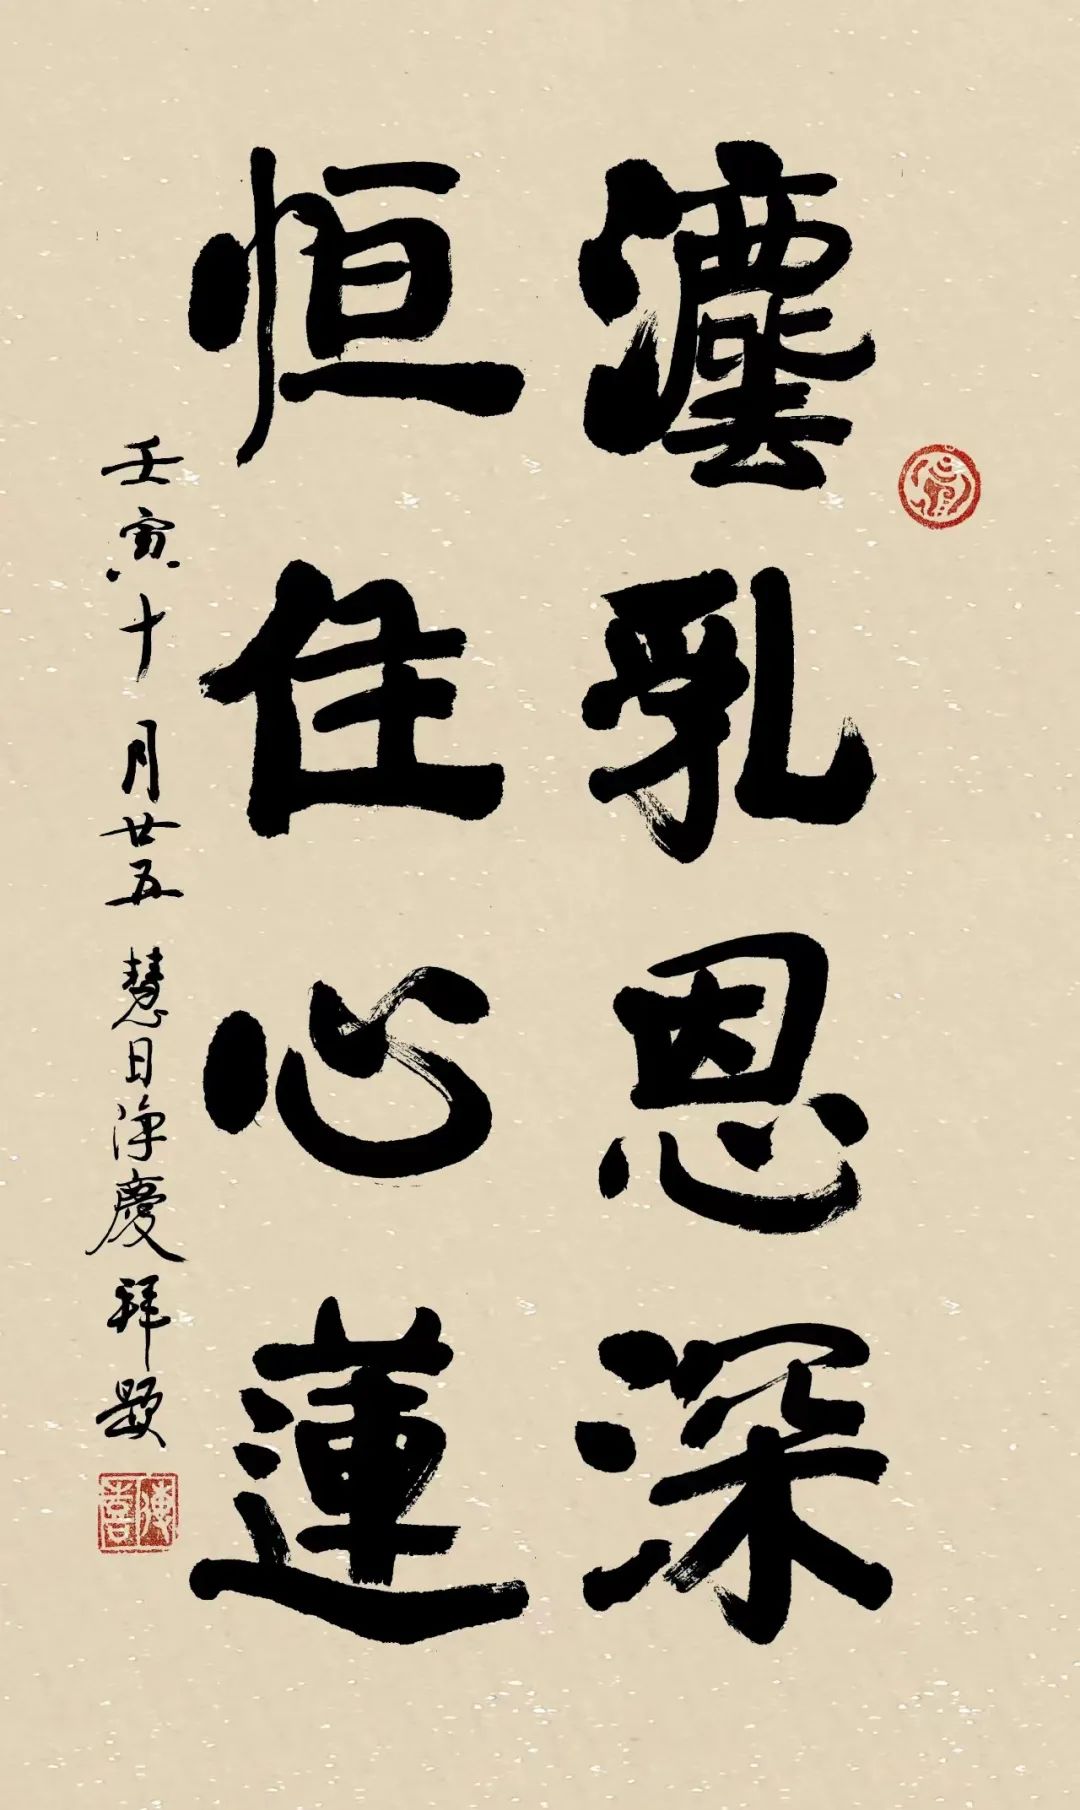 灋乳恩深
恒住心蓮
壬寅十月廿五 慧日净慶拜題
傳喜